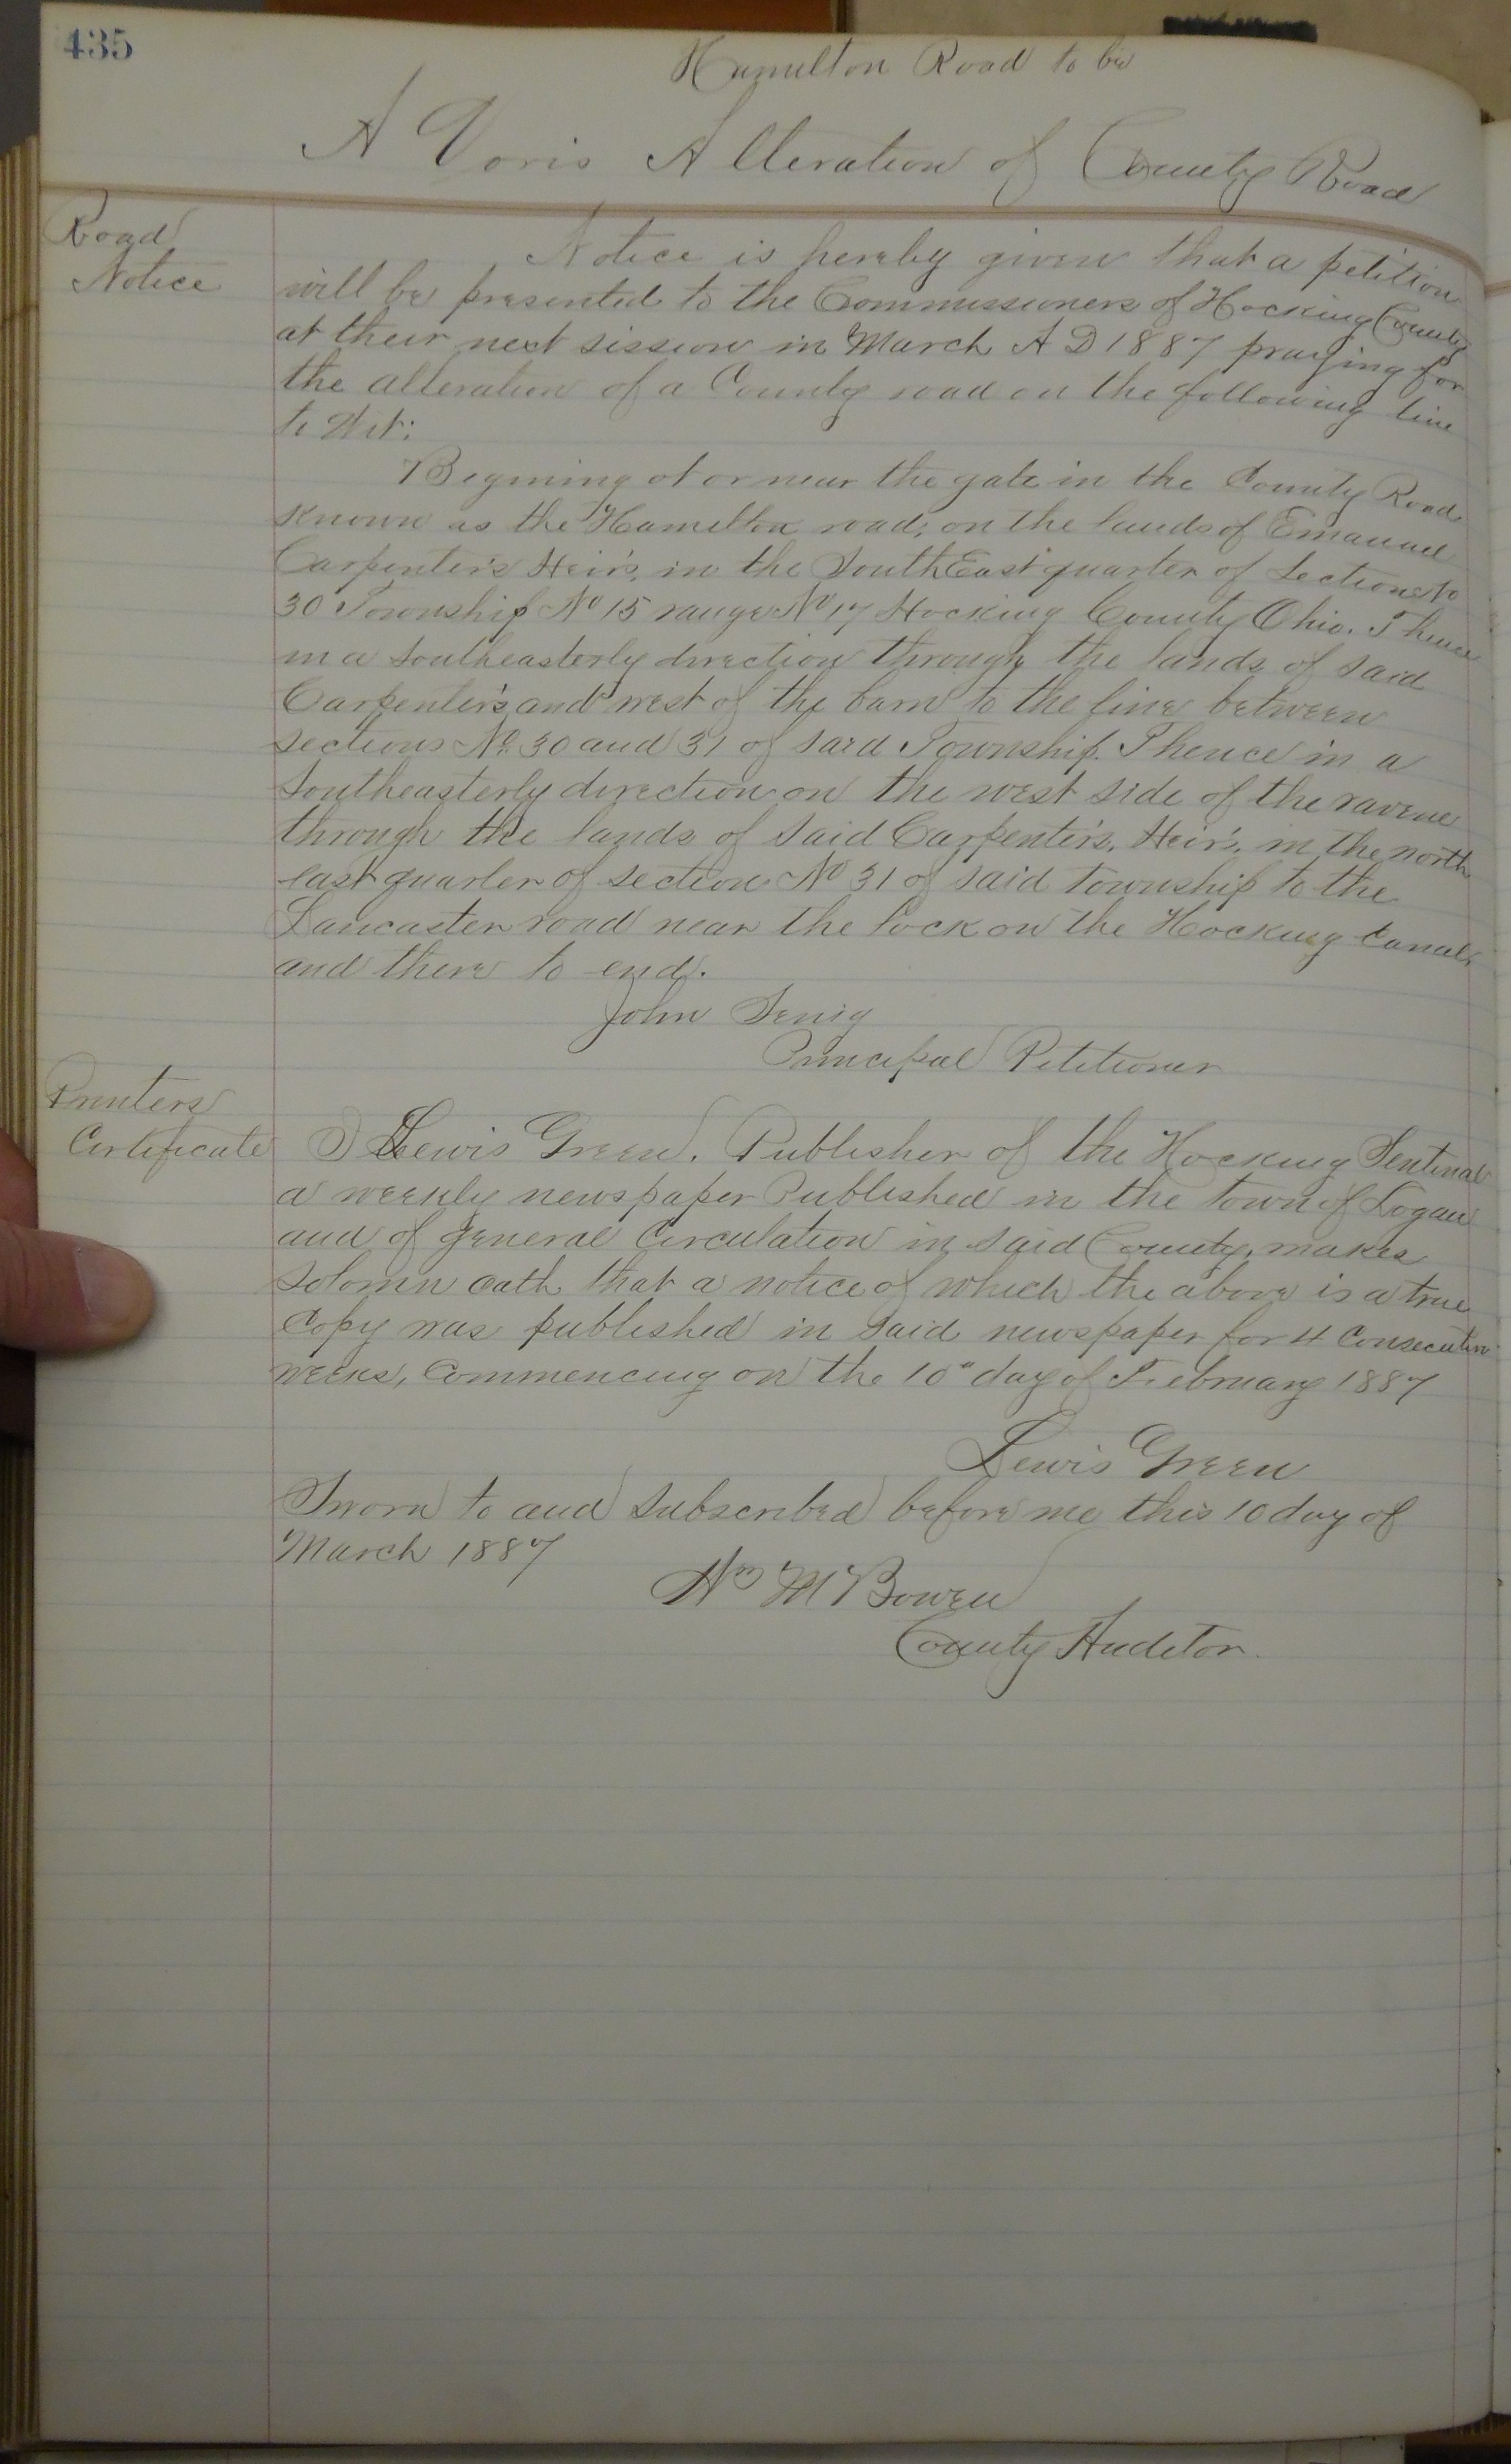 435
Hamilton Road to be
A Voris Alteration of County Road
Road
Notice
Notice is hereby given that a petition
will be presented to the Commissioners of Hocking County
at their next sission in March A D 1887 praying for
the alteration of a County road on the following line
to Wit:
Begining at or near the gate in the County Road
Known as the Hamilton road, on the lands of Emanuel
Carpenter's Heir's, in the South East quarter of Section No
30 Township No 15 range No 17 Hocking County Ohio. Thence
in a Southeasterly direction through the lands of said
Carpenter's and west of the barn to the line between
sections No. 30 and 31 of said Township. Thence in a
Southeasterly direction on the west side of the ravene
through the lands of said Carpenter's, Heir's, in the north
east quarter of section No 31 of said township to the
Lancaster road near the lock on the Hocking Canal,
and there to end.
John
Principal Petitioner
Printers
Certificate
I Lewis Green, Publisher of the Hocking Sentinal
a weekly newspaper Published in the town of Logan
and of general Circulation in said County, makes
Solomn oath that a notice of which the above is a true
Copy was published in said newspaper for 4 Consecutive
weeks, Commencing on the 10" day of February 1887
Lewis Green
Sworn to and subscribed before me this 10 day of
March 1887
Wm M Bowen
County Auditor.